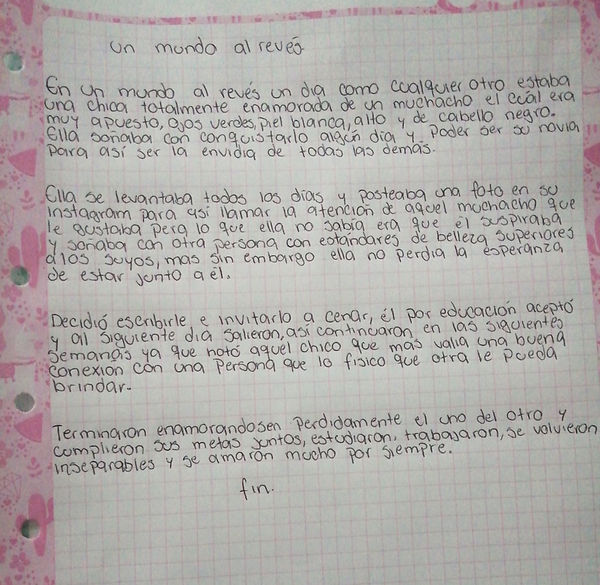 Un mundo al revés
En un mundo al revés un dia como cualquier otro estaba
una chica totalmente enamorada de un muchacho el cuál era
muy apuesto, ojos verdes, piel blanca, alto y de cabello negro.
Ella soñaba con conquistarlo algún dia y poder ser su novia
para así ser la envidia de todas las demás.
Ella se levantaba todos los días y posteaba una foto en su
instagram para así llamar la atención de aquel muchacho que
le gustaba pero lo que ella no sabía era que él suspiraba
y soñaba con otra persona con estándares de belleza superiores
a los suyos, mas sin embargo ella no perdia la esperanza
de estar junto a él.
Decidió escribirle e invitarlo a cenar, él por educación aceptó
y al siguiente día salieron, así continuaron en las siguientes
semanas ya que notó aquel chico que mas valia una buena
conexion con una persona que lo fisico que otra le pueda
brindar.
Terminaron enamorandosen perdidamente el uno del otro y
cumplieron sus metas juntos, estudiaron, trabajaron, se volvieron
inseparables y se amaron mucho por siempre.
fin.